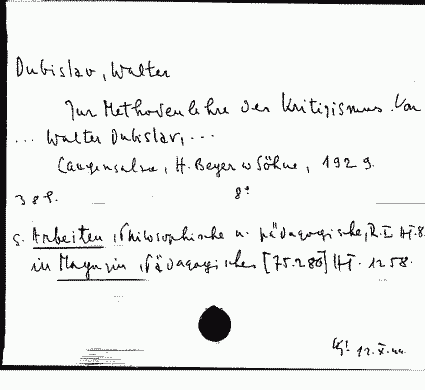 Dubislav, Walter
Zur Methodenlehre des Kritizismus. Von
... Walter Dubislav, ...
Langensalza, H. Beyer u Söhne, 1929.
38 S. 8°
S. Arbeiten, Philosophische u. pädagogische, R. I HF. 8
in Magazin, Pädagogisches [75.280] HF. 1258.
12. X. 44.